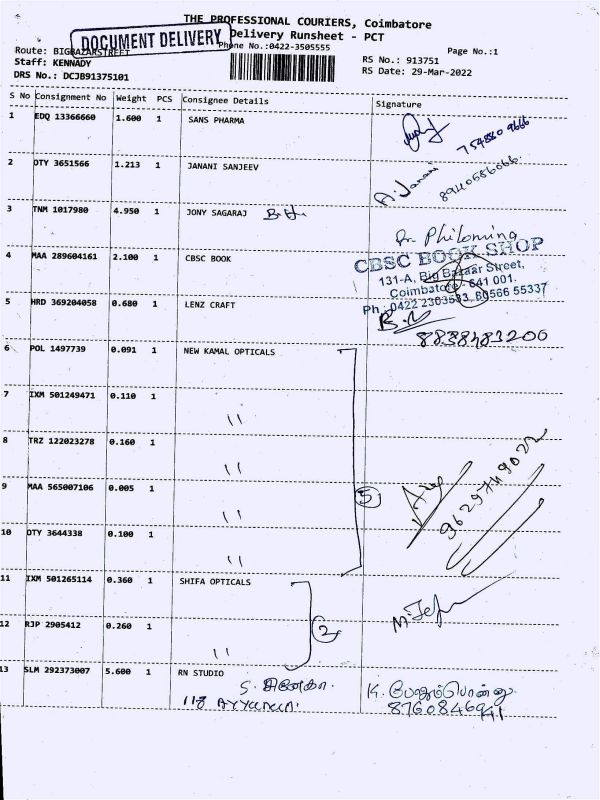 THE PROFESSIONAL COURIERS, Coimbatore
Delivery Runsheet - PCT
DOCUMENT DELIVERY
Phone No.:0422-3505555
Page No.:1
Route: BIGBAZARSTREET
Staff: KENNADY
DRS No.: DCJB91375101
RS No.: 913751
RS Date: 29-Mar-2022
S No Consignment No Weight PCS Consignee Details Signature
1 EDQ 13366660 1.600 1 SANS PHARMA
2 OTY 3651566 1.213 1 JANANI SANJEEV A. Janani
3 TNM 1017980 4.950 1 JONY SAGARAJ
Dr. Philomina
4 MAA 289604161 2.100 1 CBSC BOOK
CBSC BOOK SHOP
131-A, Big Bazaar Street,
Coimbatore - 641 001.
Ph : 0422 2303533, 80566 55337
5 HRD 369204058 0.680 1 LENZ CRAFT
8838483200
6 POL 1497739 0.091 1 NEW KAMAL OPTICALS
7 IXM 501249471 0.110 1 "
8 TRZ 122023278 0.160 1 "
9 MAA 565007106 0.005 1 " 5
9629749022
10 OTY 3644338 0.100 1 "
11 IXM 501265114 0.360 1 SHIFA OPTICALS
12 RJP 2905412 0.260 1 " 2
13 SLM 292373007 5.600 1 RN STUDIO
118